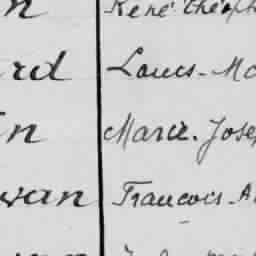 n René Théoph
rd Louis-Ma
in Marie-Josep
wan François-A